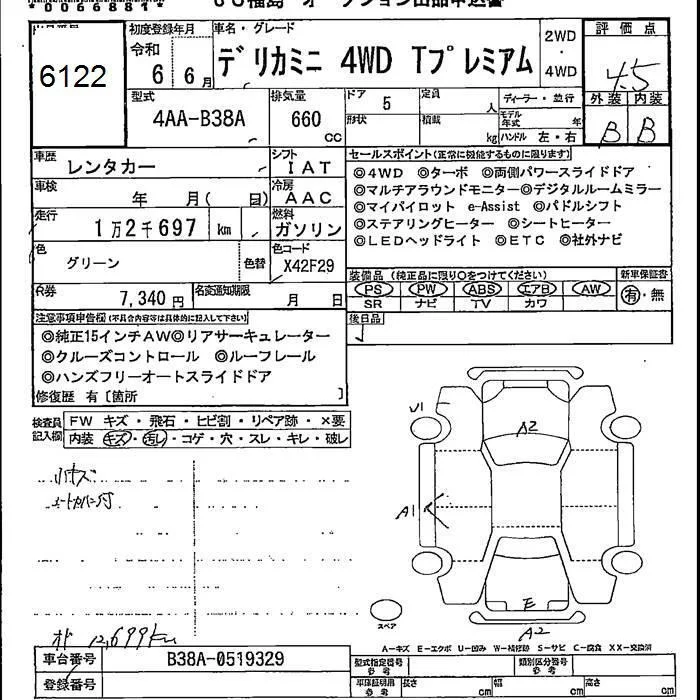 *0066881*
出品申込書
初度登録年月
車名・グレード
2WD
・
4WD
評価点
6122
令和
6 6月
デリカミニ 4WD Tプレミアム
4.5
型式
排気量
ドア 5
定員 人
ディーラー・並行
外装 内装
4AA-B38A
660 CC
形状
積載 kg
モデル年式 年
ハンドル 左・右
B B
車歴
レンタカー
シフト
IAT
セールスポイント(正常に機能するものに限ります)
車検
年 月( 日)
冷房
AAC
◎4WD ◎ターボ ◎両側パワースライドドア
◎マルチアラウンドモニター◎デジタルルームミラー
走行
1万2千697 km
燃料
ガソリン
◎マイパイロット e-Assist ◎パドルシフト
◎ステアリングヒーター ◎シートヒーター
◎LEDヘッドライト ◎ETC ◎社外ナビ
色
グリーン
色替
色コード
X42F29
装備品 (純正品に限り○をつけてください)
新車保証書
PS PW ABS エアB AW
有・無
SR ナビ TV カワ
R券
7,340円
名変通知期限
月 日
後日品
注意事項申告欄(不具合内容等は具体的に記入して下さい)
◎純正15インチAW◎リアサーキュレーター
◎クルーズコントロール ◎ルーフレール
◎ハンズフリーオートスライドドア
修復歴 有〔箇所 〕
検査員記入欄
FW キズ・飛石・ヒビ割・リペア跡・×要
内装 キズ・汚れ・コゲ・穴・スレ・キレ・破レ
U1
A2
小キズ
A1
E
スペア
A2
オド 12,699km
A-キズ E-エクボ U-凹み W-補修跡 S-サビ C-腐食 XX-交換済
車台番号
B38A-0519329
型式指定番号
参考
類別区分番号
参考
登録番号
車庫証明用
参考
長さ cm
幅 cm
高さ cm